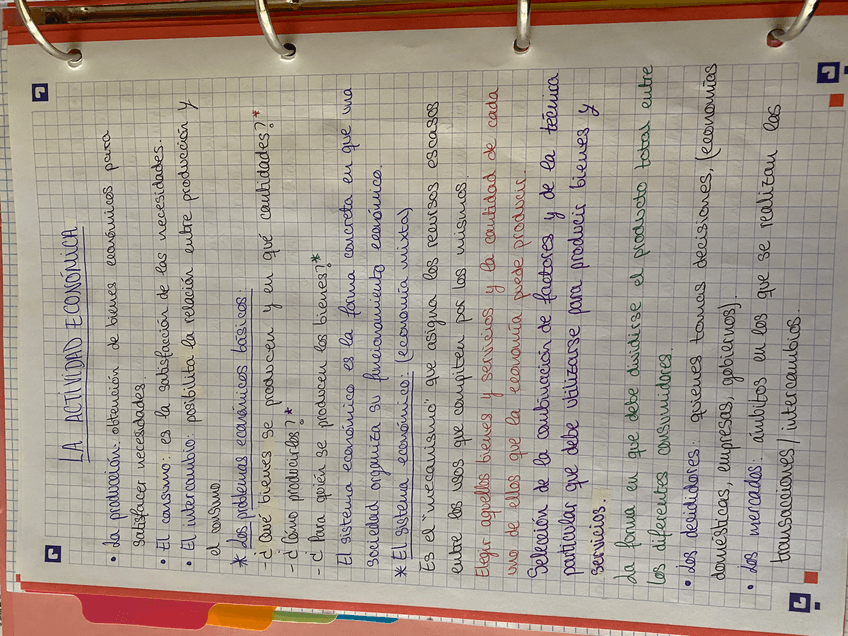 LA ACTIVIDAD ECONÓMICA
• La producción: obtención de bienes económicos para
satisfacer necesidades.
• El consumo: es la satisfacción de las necesidades.
• El intercambio: posibilita la relación entre producción y
el consumo
* Los problemas económicos básicos:
- ¿Qué bienes se producen y en qué cantidades?*
- ¿Cómo producirlos?*
- ¿Para quién se producen los bienes?*
El sistema económico es la forma concreta en que una
sociedad organiza su funcionamiento económico.
* El sistema económico: (economía mixta)
Es el "mecanismo" que asigna los recursos escasos
entre los usos que compiten por los mismos.
Elegir aquellos bienes y servicios y la cantidad de cada
uno de ellos que la economía puede producir.
Selección de la combinación de factores y de la técnica
particular que debe utilizarse para producir bienes y
servicios.
La forma en que debe dividirse el producto total entre
los diferentes consumidores.
• Los decididores: quienes tomas decisiones, (economías
domésticas, empresas, gobiernos).
• Los mercados: ámbitos en los que se realizan las
transacciones/intercambios.